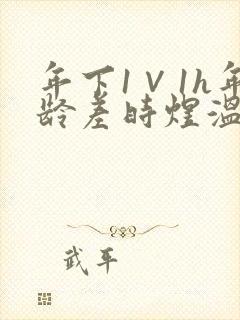 年下1V1h年
龄差时煜温
武平